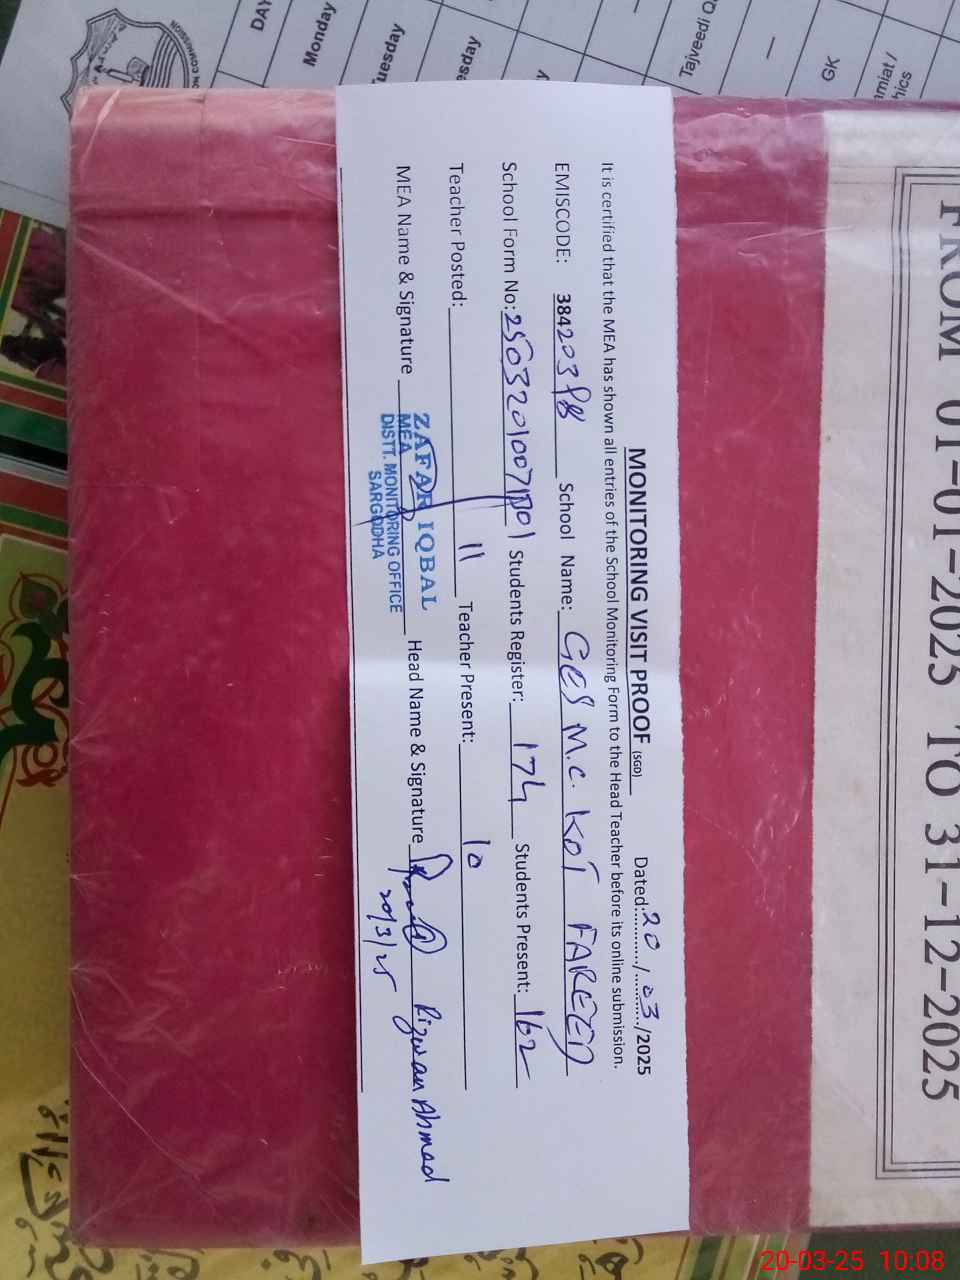 MONITORING VISIT PROOF (SGD) Dated: 20/03/2025
It is certified that the MEA has shown all entries of the School Monitoring Form to the Head Teacher before its online submission.
EMISCODE: 38420398 School Name: GES M.C. KOT FAREED
School Form No: Students Register: 174 Students Present: 162
Teacher Posted: 11 Teacher Present: 10
MEA Name & Signature Head Name & Signature Rizwan Ahmed
20/3/25
ZAFAR IQBAL
MEA
DISTT. MONITORING OFFICE
SARGODHA
FROM 01-01-2025 TO 31-12-2025
DAY
Monday
Tuesday
Tajveedi
GK
20-03-25 10:08